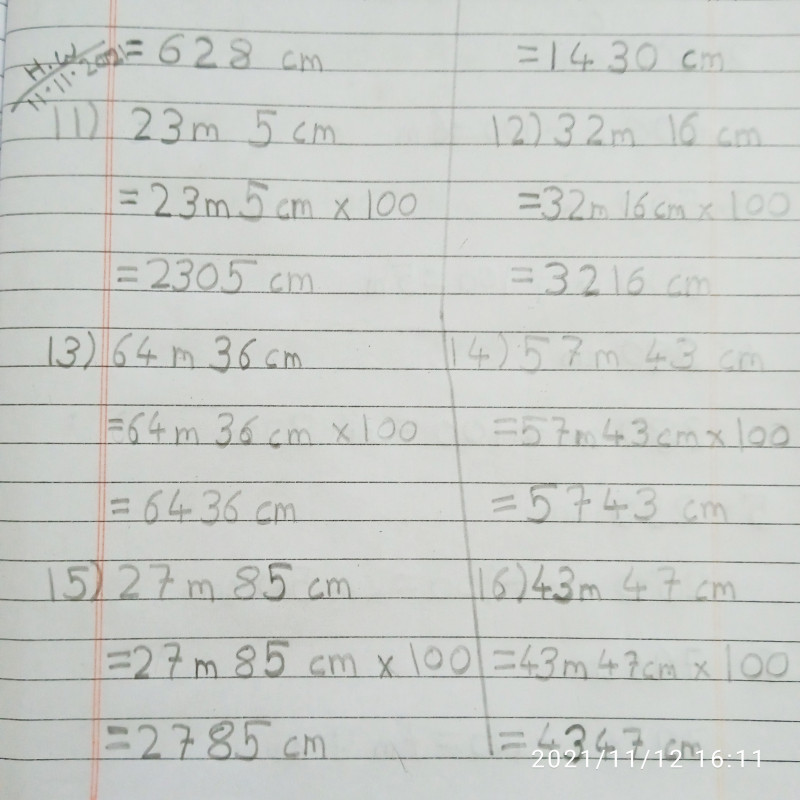 H.W
11.11.2021
= 628 cm
= 1430 cm
11) 23m 5 cm
= 23m 5 cm x 100
= 2305 cm
12) 32m 16 cm
= 32m 16 cm x 100
= 3216 cm
13) 64 m 36 cm
= 64 m 36 cm x 100
= 6436 cm
14) 57 m 43 cm
= 57m 43 cm x 100
= 5743 cm
15) 27 m 85 cm
= 27 m 85 cm x 100
= 2785 cm
16) 43m 47 cm
= 43m 47cm x 100
= 4347 cm
2021/11/12 16:11